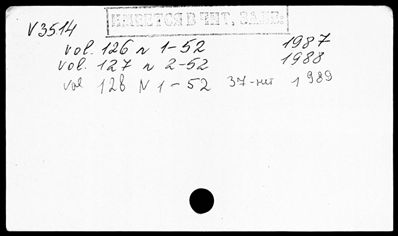 ИМЕЕТСЯ В ЧИТ. ЗАЛЕ.
V3514
vol. 126 N 1-52 1987
vol. 127 N 2-52 1988
vol 128 N 1-52 37-нет 1989